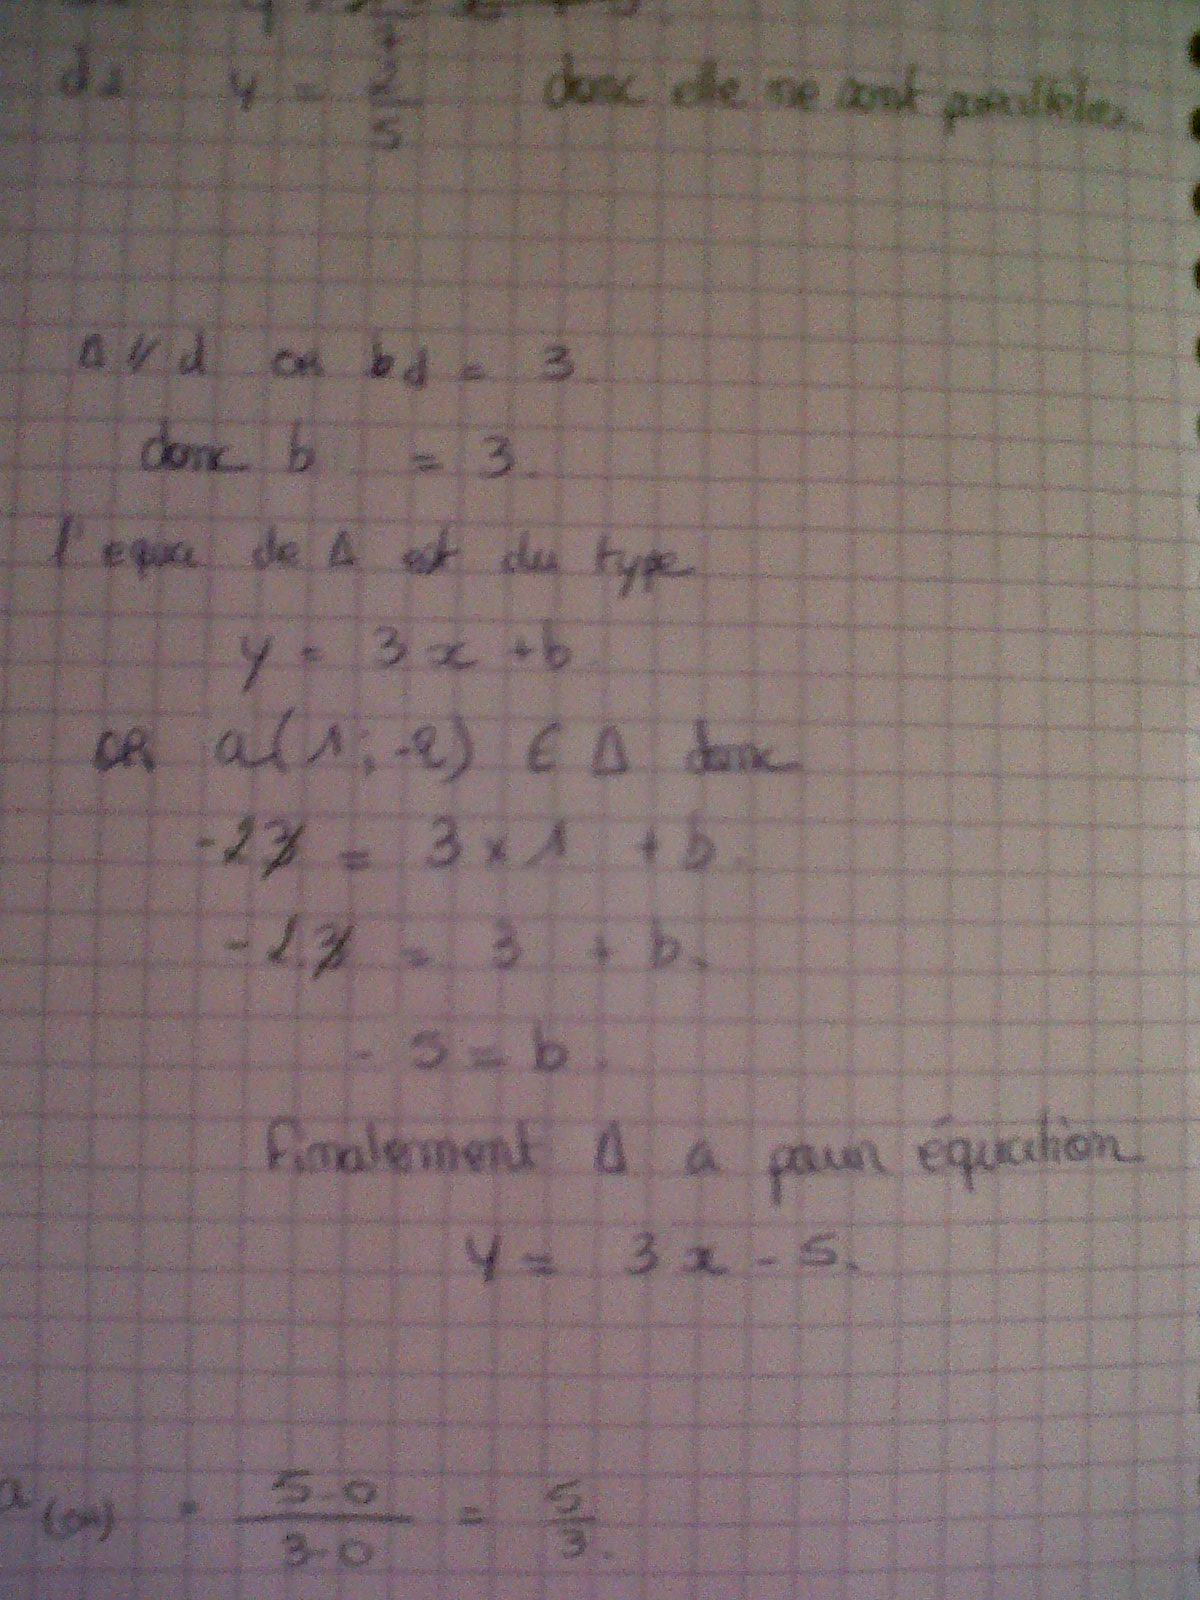 d2 y = 2/5 donc elle ne sont parallèles
Δ // d or bd = 3
donc b = 3.
l'equa de Δ est du type
y = 3x + b.
or a(1; -2) ∈ Δ donc
-2 = 3 x 1 + b.
-2 = 3 + b.
- 5 = b.
finalement Δ a pour équation
y = 3x - 5.
a = 5-0/3-0 = 5/3.